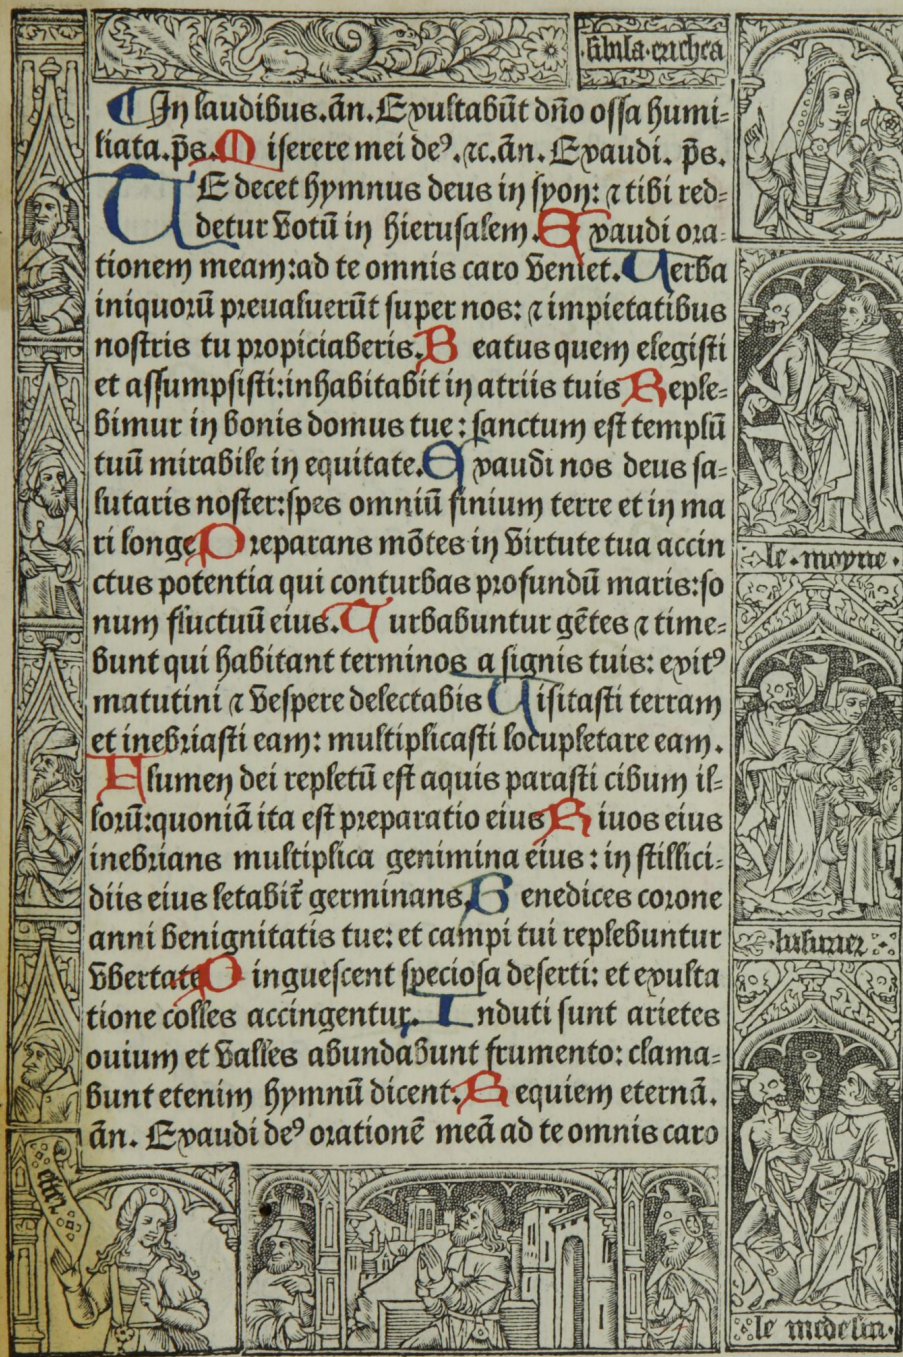 In laudibus.añ.Exultabũt dño ossa humi-
liata.p̃s.Miserere mei deꝰ.⁊c.añ.Exaudi. p̃s.
TE decet hymnus deus in syon: ⁊ tibi red-
detur votũ in hierusalem.Exaudi ora-
tionem meam:ad te omnis caro veniet.Verba
iniquorũ preualuerũt super nos: ⁊ impietatibus
nostris tu propiciaberis.Beatus quem elegisti
et assumpsisti:inhabitabit in atriis tuis Reple-
bimur in bonis domus tue: sanctum est templũ
tuũ mirabile in equitate.Exaudi nos deus sa-
lutaris noster:spes omniũ finium terre et in ma
ri longe Preparans mõtes in virtute tua accin
ctus potentia qui conturbas profundũ maris:so
num fluctuũ eius.Turbabuntur gẽtes ⁊ time-
bunt qui habitant terminos a signis tuis: exitꝰ
matutini ⁊ vespere delectabis Uisitasti terram
et inebriasti eam: multiplicasti locupletare eam.
Flumen dei repletũ est aquis parasti cibum il-
lorũ:quoniã ita est preparatio eius Riuos eius
inebrians multiplica genimina eius: in stillici-
diis eius letabit̃ germinans.Benedices corone
anni benignitatis tue: et campi tui replebuntur
vbertate Pinguescent speciosa deserti: et exulta
tione colles accingentur.Induti sunt arietes
ouium et valles abundabunt frumento: clama-
bunt etenim hymnũ dicent.Requiem eternã.
añ. Exaudi deꝰ orationẽ meã ad te omnis caro
le.moyne.
lusurier
le medecin.